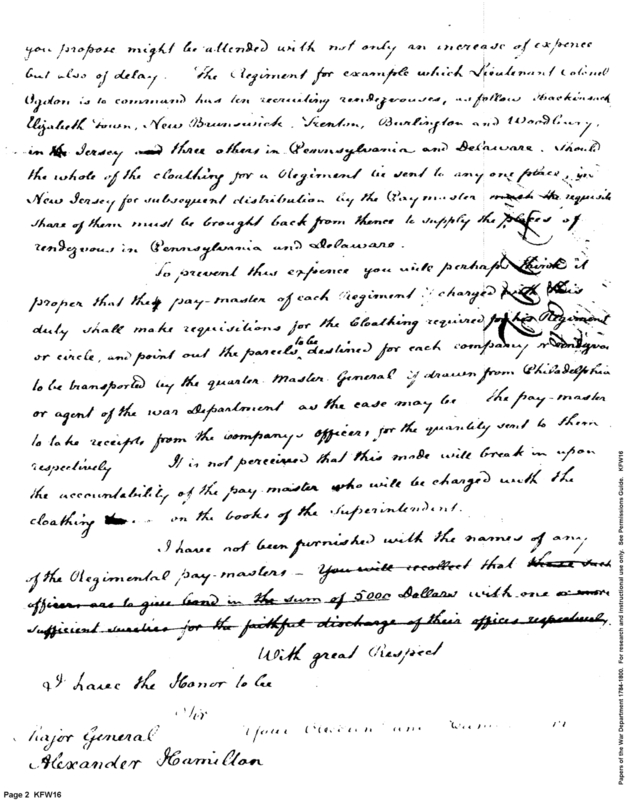 you propose might be attended with not only an increase of expence
but also of delay. The Regiment for example which Lieutenant Colonel
Ogdon is to command has ten recruiting rendezvouses, as follow Hackinsack
Elizabeth Town, New Brunswick, Trenton, Burlington and Woodbury,
in Jersey and three others in Pennsylvania and Delaware. Should
the whole of the cloathing for a Regiment be sent to any one place, in
New Jersey for subsequent distribution by the Paymaster the requisite
share of them must be brought back from thence to supply the places of
rendezvous in Pennsylvania and Delaware.
To prevent this expence you will perhaps think it
proper that the pay-master of each Regiment if charged with this
duty shall make requisitions for the Cloathing required for his Regiment
or circle, and point out the parcels to be destined for each company or rendezvous
to be transported by the quarter Master General if drawn from Philadelphia
or agent of the war Department as the case may be The pay-master
to take receipts from the company officers for the quantity sent to them
respectively It is not perceived that this mode will break in upon
the accountability of the pay-master who will be charged with the
cloathing on the books of the Superintendent.
I have not been furnished with the names of any
of the Regimental pay-masters – You will recollect that these such
officers are to give bond in the sum of 5000 Dollars with one or more
sufficient sureties for the faithful discharge of their offices respectively.
With great Respect
I have the Honor to be
Sir
Your
Major General
Alexander Hamilton
Page 2 KFW16
Papers of the War Department 1784-1800. For research and instructional use only. See Permissions Guide. KFW16